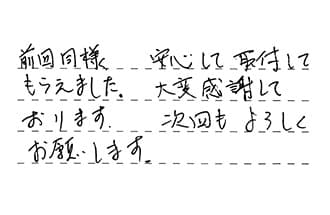 前回同様 安心して取付して
もらえました。大変感謝して
おります。 次回もよろしく
お願いします。